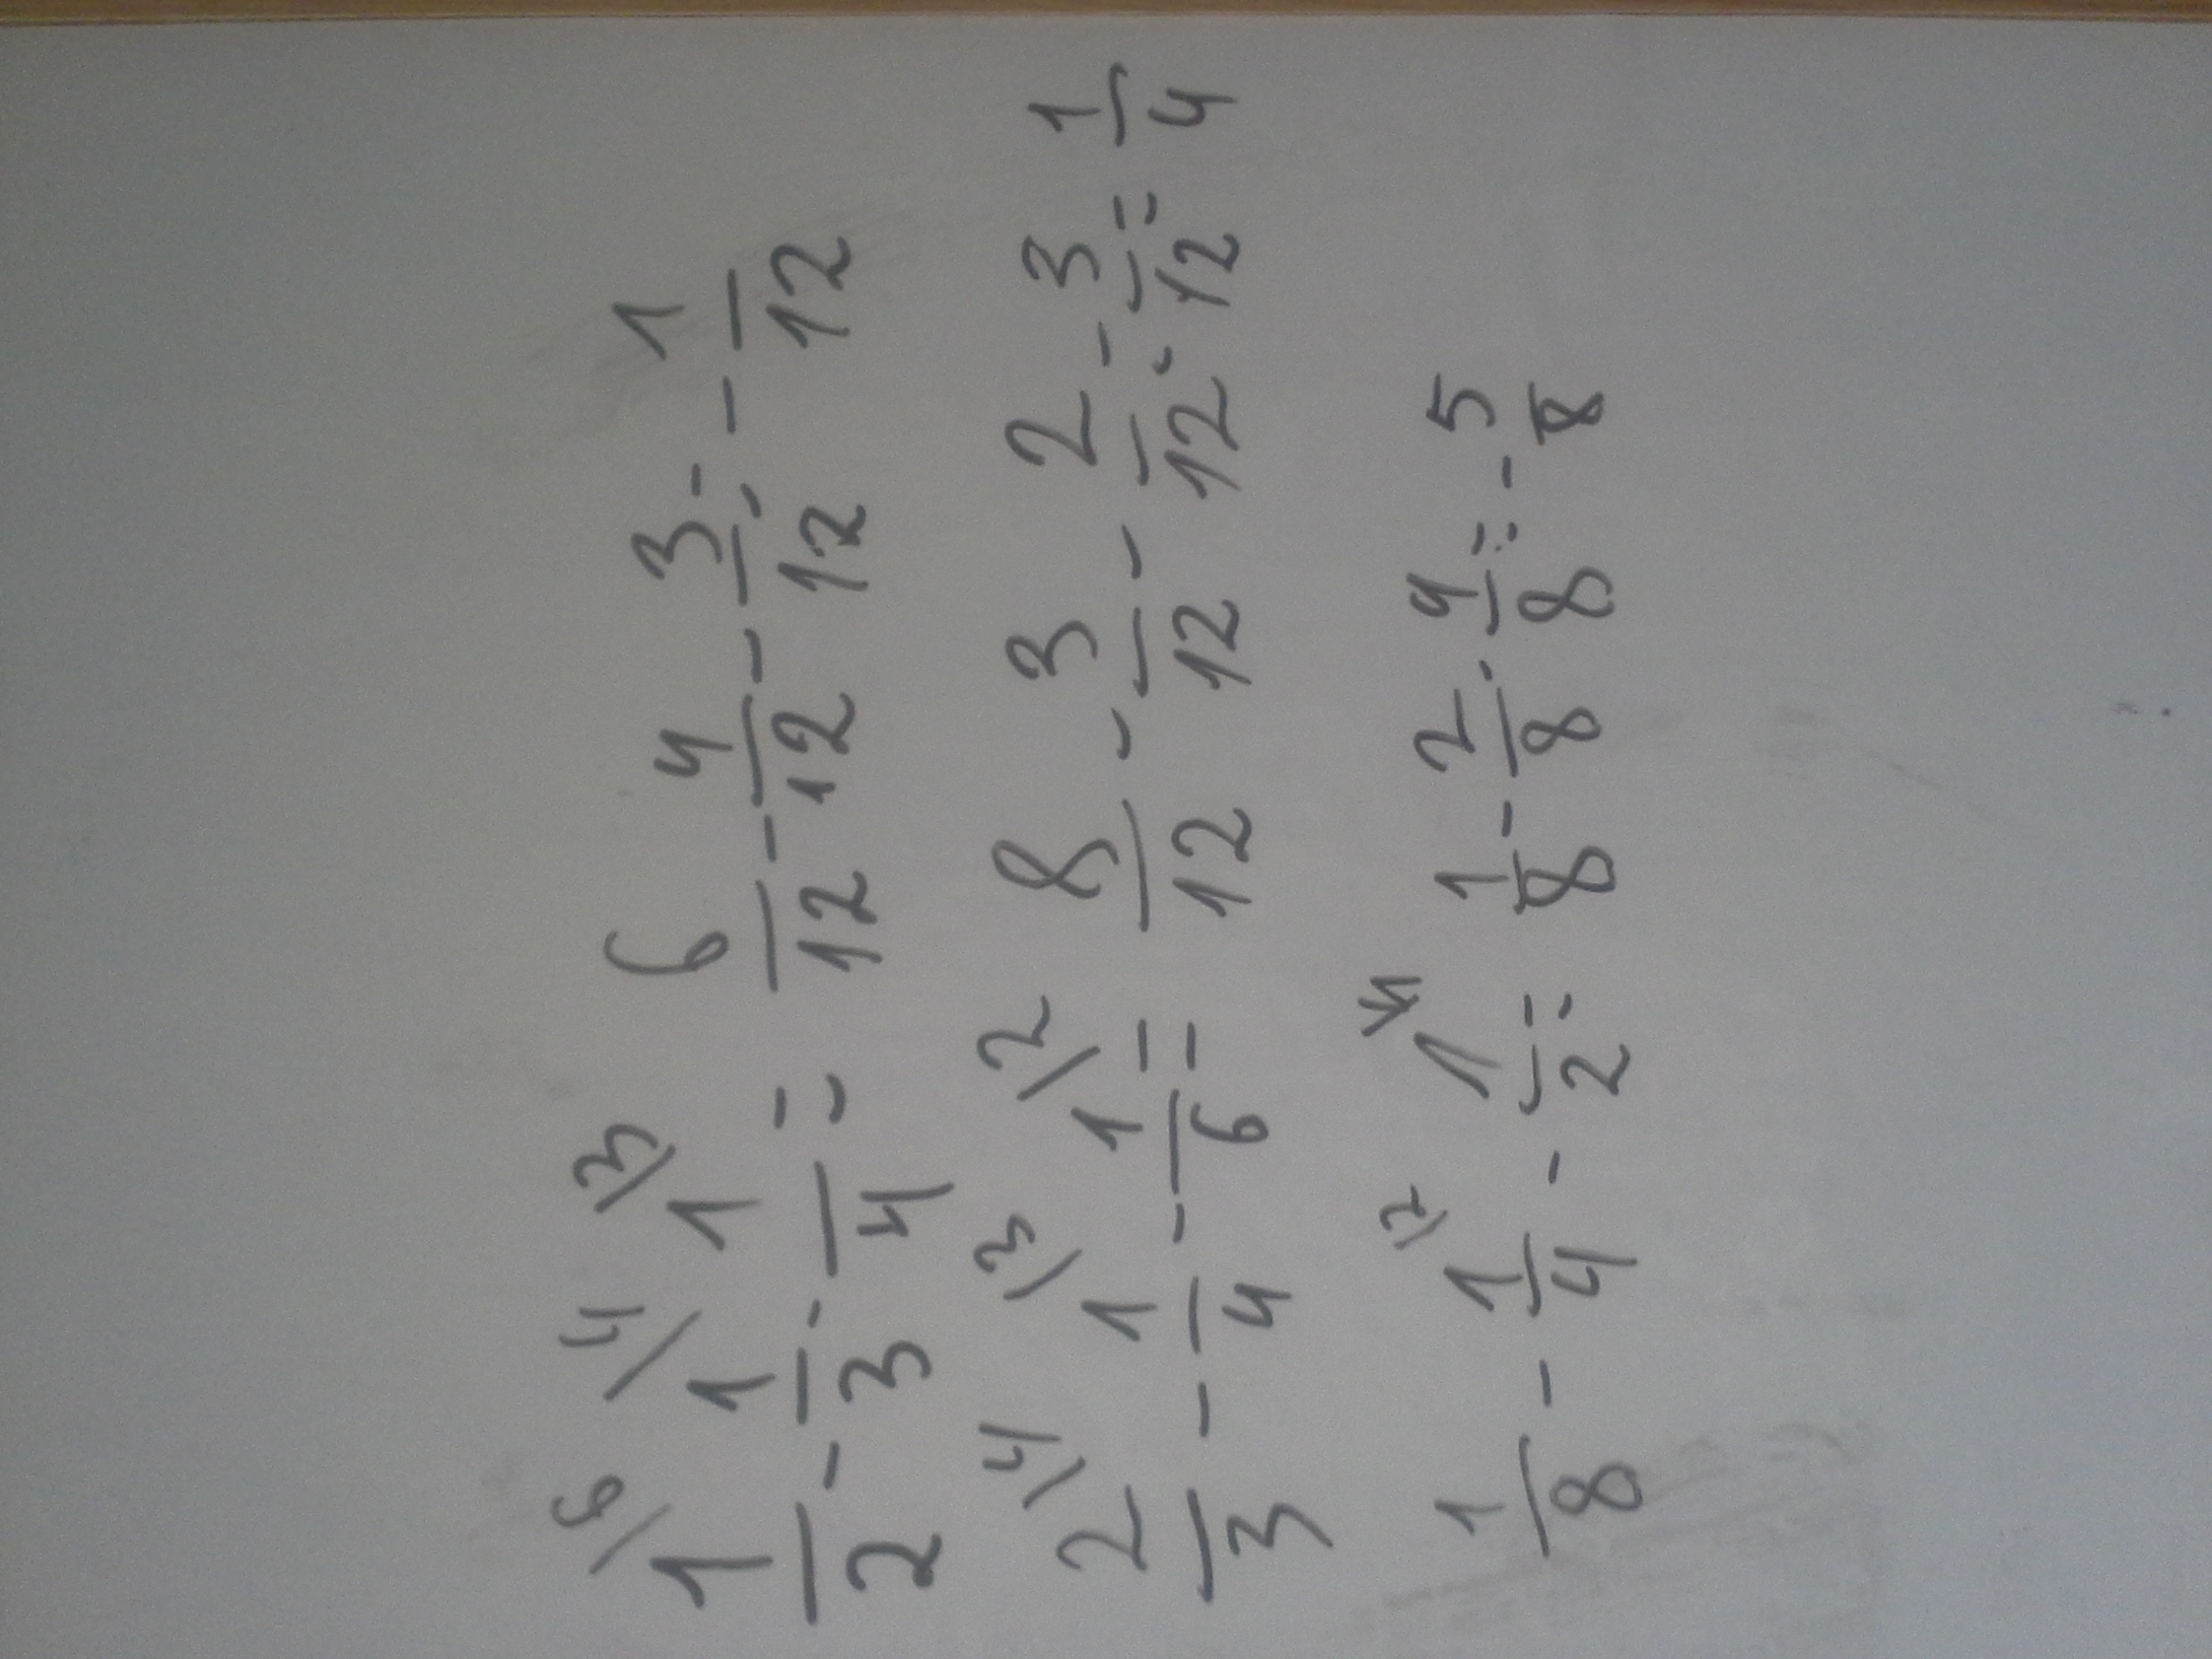 1/2 \6 - 1/3 \4 - 1/4 \3 = 6/12 - 4/12 - 3/12 = - 1/12
2/3 \4 - 1/4 \3 - 1/6 \2 = 8/12 - 3/12 - 2/12 = 3/12 = 1/4
1/8 - 1/4 \2 - 1/2 \4 = 1/8 - 2/8 - 4/8 = - 5/8